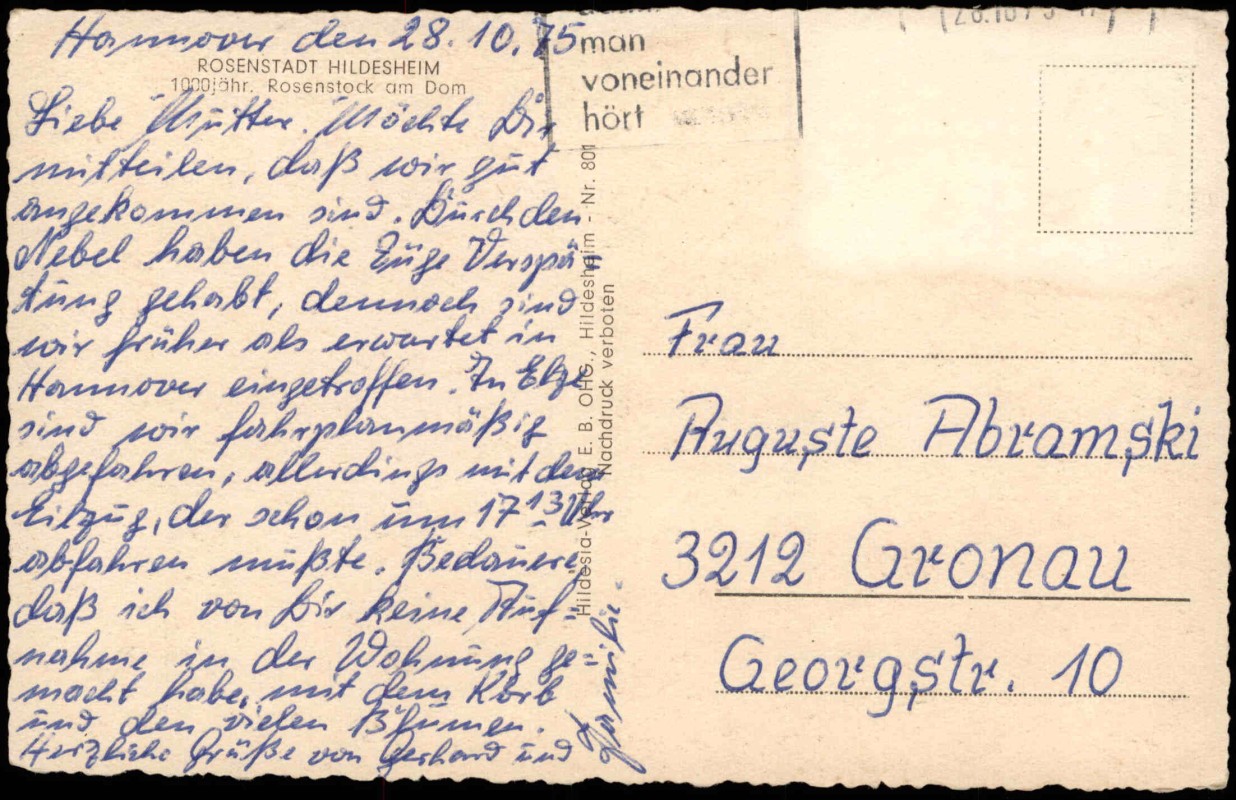 Hannover den 28.10.75
ROSENSTADT HILDESHEIM
1000jähr. Rosenstock am Dom
Liebe Mutter. Möchte Dir
mitteilen, daß wir gut
angekommen sind. Durch den
Nebel haben die Züge Verspä-
tung gehabt, dennoch sind
wir früher als erwartet in
Hannover eingetroffen. In Elze
sind wir fahrplanmäßig
abgefahren, allerdings mit dem
Eilzug, der schon um 17 13 Uhr
abfahren mußte. Bedauere,
daß ich von Dir keine Auf=
nahme in der Wohnung ge=
macht habe, mit dem Korb
und den vielen Blumen.
Herzliche Grüße von Gerhard und
man
voneinander
hört
Hildesia-Verlag E. B. OHG., Hildesheim - Nr. 801
Nachdruck verboten
Frau
Auguste Abramski
3212 Gronau
Georgstr. 10